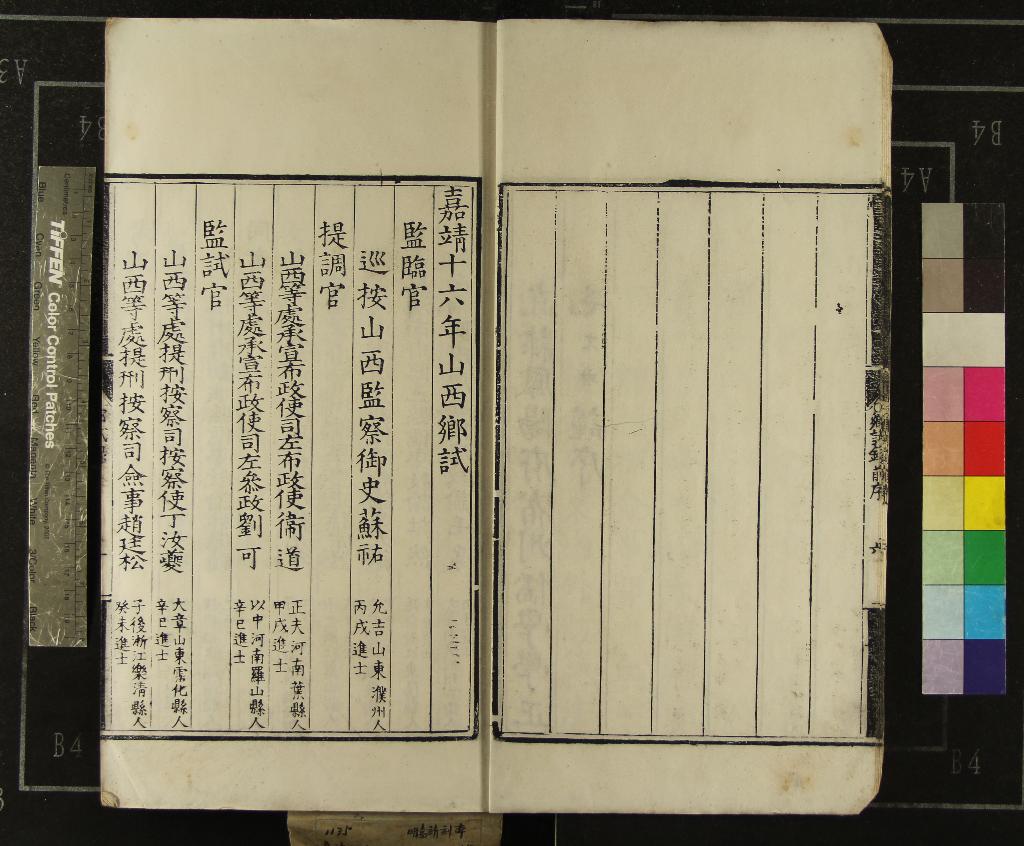 嘉靖十六年山西鄉試
監臨官
巡按山西監察御史蘇祐
允吉山東濮州人
丙戌進士
提調官
山西等處承宣布政使司左布政使衞道
正夫河南葉縣人
甲戌進士
山西等處承宣布政使司左叅政劉可
以中河南羅山縣人
辛巳進士
監試官
山西等處提刑按察司按察使丁汝夔
大章山東霑化縣人
辛巳進士
山西等處提刑按察司僉事趙廷松
子後浙江樂清縣人
癸未進士
鄉試錄前序
六
TIFFEN Color Control Patches
Centimetres
Blue
Cyan
Green
Yellow
Red
Magenta
White
3/Color
Black
A3
B4
B4
A4
B4
B4
1135
明嘉靖刊本